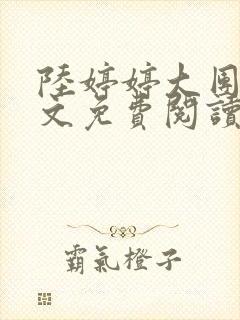 陸婷婷大團
文免費閱讀
霸氣橙子